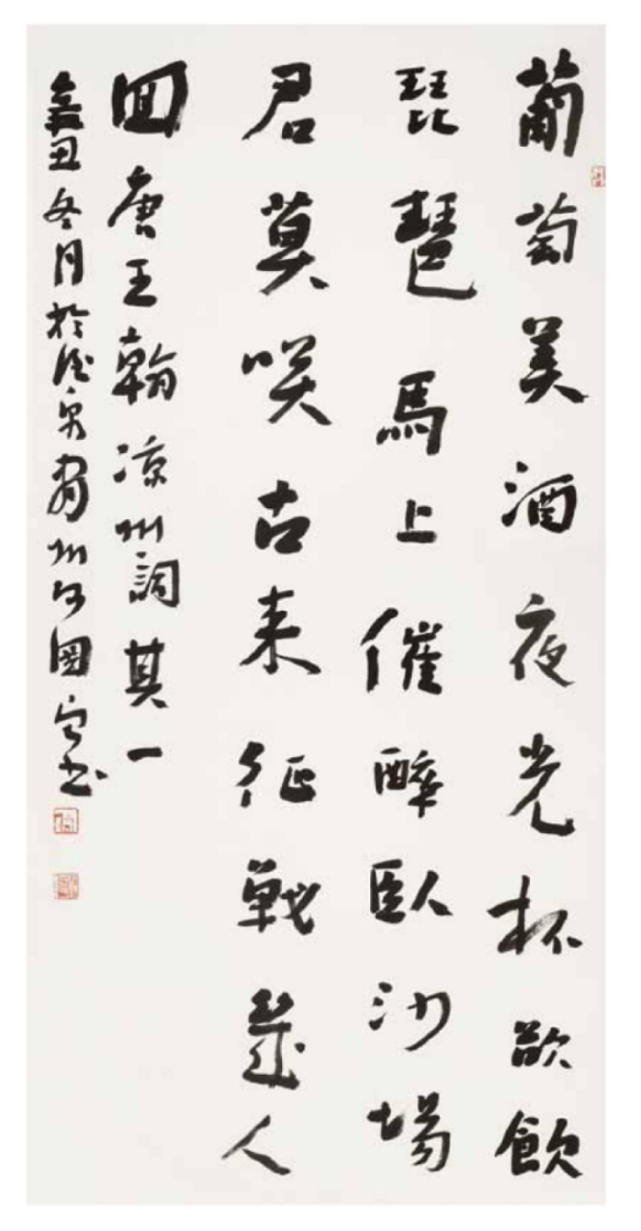 葡萄美酒夜光杯欲飲
琵琶馬上催醉臥沙場
君莫咲古来征戰幾人
回唐王翰凉州詞其一
辛丑冬月於酒泉肅州何國宝书